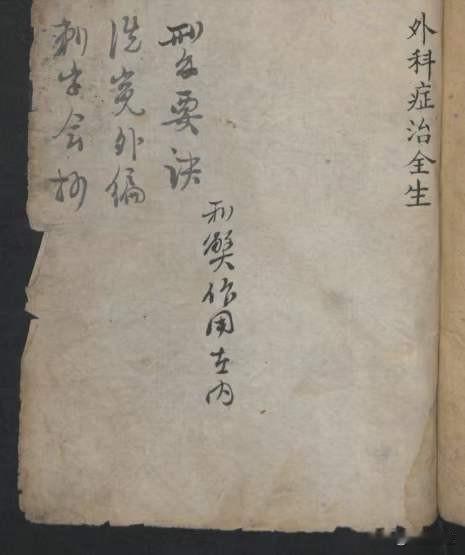 外科症治全生
刑名要訣
洗冤外編
刺字会抄
刑獘作用在内